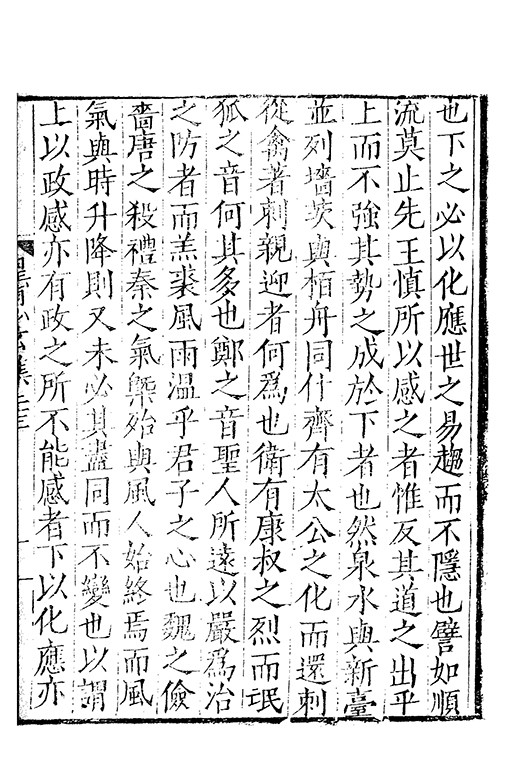 也下之必以化應世之易趨而不隱也譬如順
流莫止先王慎所以感之者惟反其道之出乎
上而不強其勢之成於下者也然泉水與新臺
並列墻茨與栢舟同什齊有太公之化而還刺
從禽著刺親迎者何為也衛有康叔之烈而氓
狐之音何其多也鄭之音聖人所遠以嚴為治
之防者而羔裘風雨溫乎君子之心也魏之儉
嗇唐之殺禮秦之氣槩殆與風人始終焉而風
氣與時升降則又未必其盡同而不變也以謂
上以政感亦有政之所不能感者下以化應亦